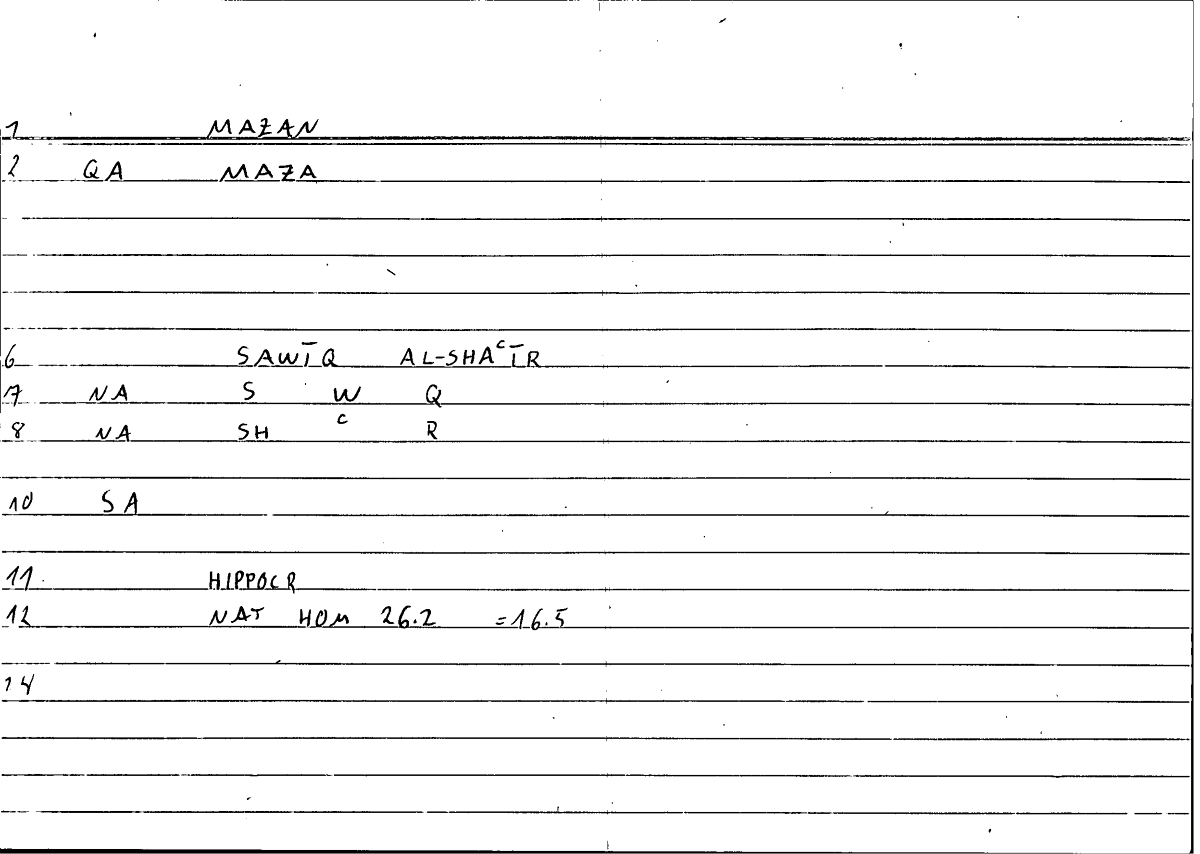 1 MAZAN
2 QA MAZA
6 SAWĪQ AL-SHAᶜĪR
7 NA S W Q
8 NA SH ᶜ R
10 SA
11 HIPPOCR
12 NAT HOM 26.2 =16.5
14